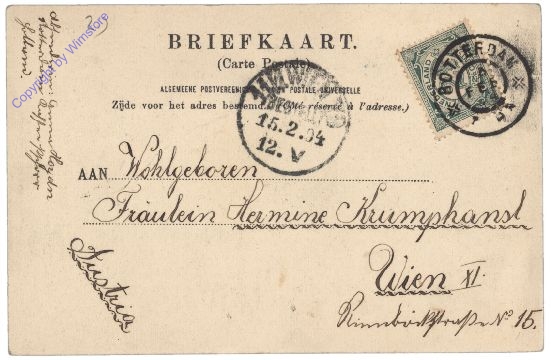 BRIEFKAART.
(Carte Postale)
ALGEMEENE POSTVEREENIGING UNION POSTALE UNIVERSELLE
Zijde voor het adres bestemd. (Côté réservé à l'adresse.)
ROTTERDAM
FEB
15.2.04
12. V
AAN Wohlgeboren
Fräulein Hermine Krumphanst
Wien XI.
Rinnböckstraße No 15.
Austria
Copyright by Wimstore